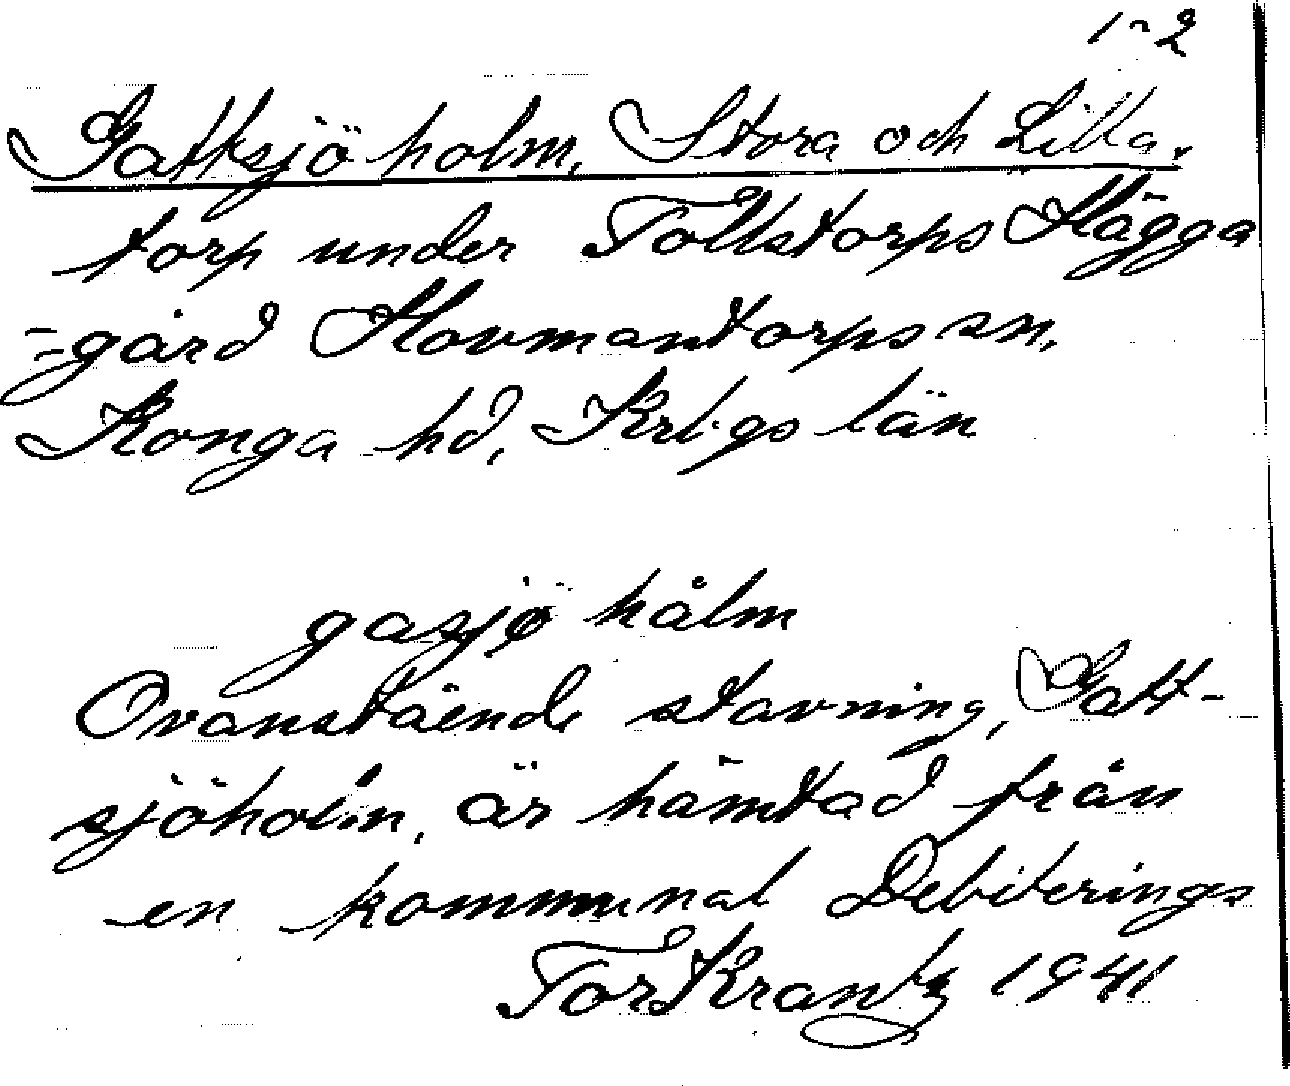 1-2
Gattsjöholm, Stora och Lilla.
torp under Tollstorps Hägga
-gård Hovmantorps sn,
Konga hd, Krbgs län
gasjö hålm
Ovanstående stavning, Gatt-
sjöholm, är hämtad från
en kommunal Debiterings
Tor Krantz 1941